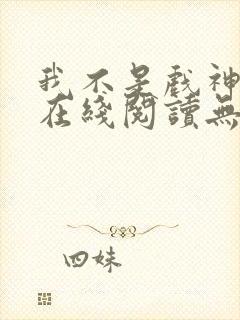 我不是戲神
在綫閱讀無
四妹